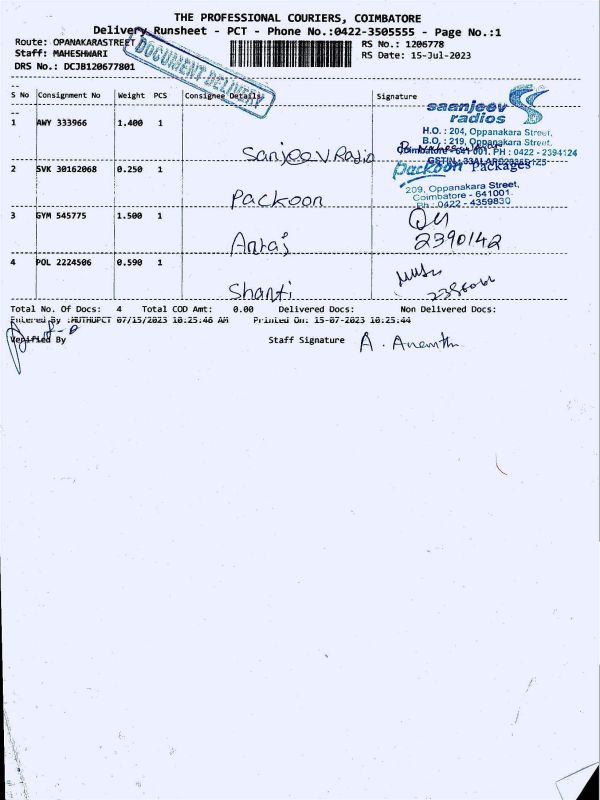 THE PROFESSIONAL COURIERS, COIMBATORE
Delivery Runsheet - PCT - Phone No.:0422-3505555 - Page No.:1
Route: OPANAKARASTREET
RS No.: 1206778
Staff: MAHESHWARI
RS Date: 15-Jul-2023
DRS No.: DCJB120677801
DOCUMENT DELIVERY
S No Consignment No Weight PCS Consignee Details Signature
1 AWY 333966 1.400 1
Sanjeev Radio
saanjeev
radios
H.O. : 204, Oppanakara Street,
B.O. : 219, Oppanakara Street,
Coimbatore - 641 001. PH : 0422 - 2394124
2 SVK 30162068 0.250 1
Packoon
Packoon Packages
209, Oppanakara Street,
Coimbatore - 641001.
Ph : 0422 - 4359830
3 GYM 545775 1.500 1
Antaj
2390142
4 POL 2224506 0.590 1
Shanti
Total No. Of Docs: 4 Total COD Amt: 0.00 Delivered Docs: Non Delivered Docs:
Entered By :MUTHUPCT 07/15/2023 10:25:46 AM Printed On: 15-07-2023 10:25:44
Verified By Staff Signature A. Ananth